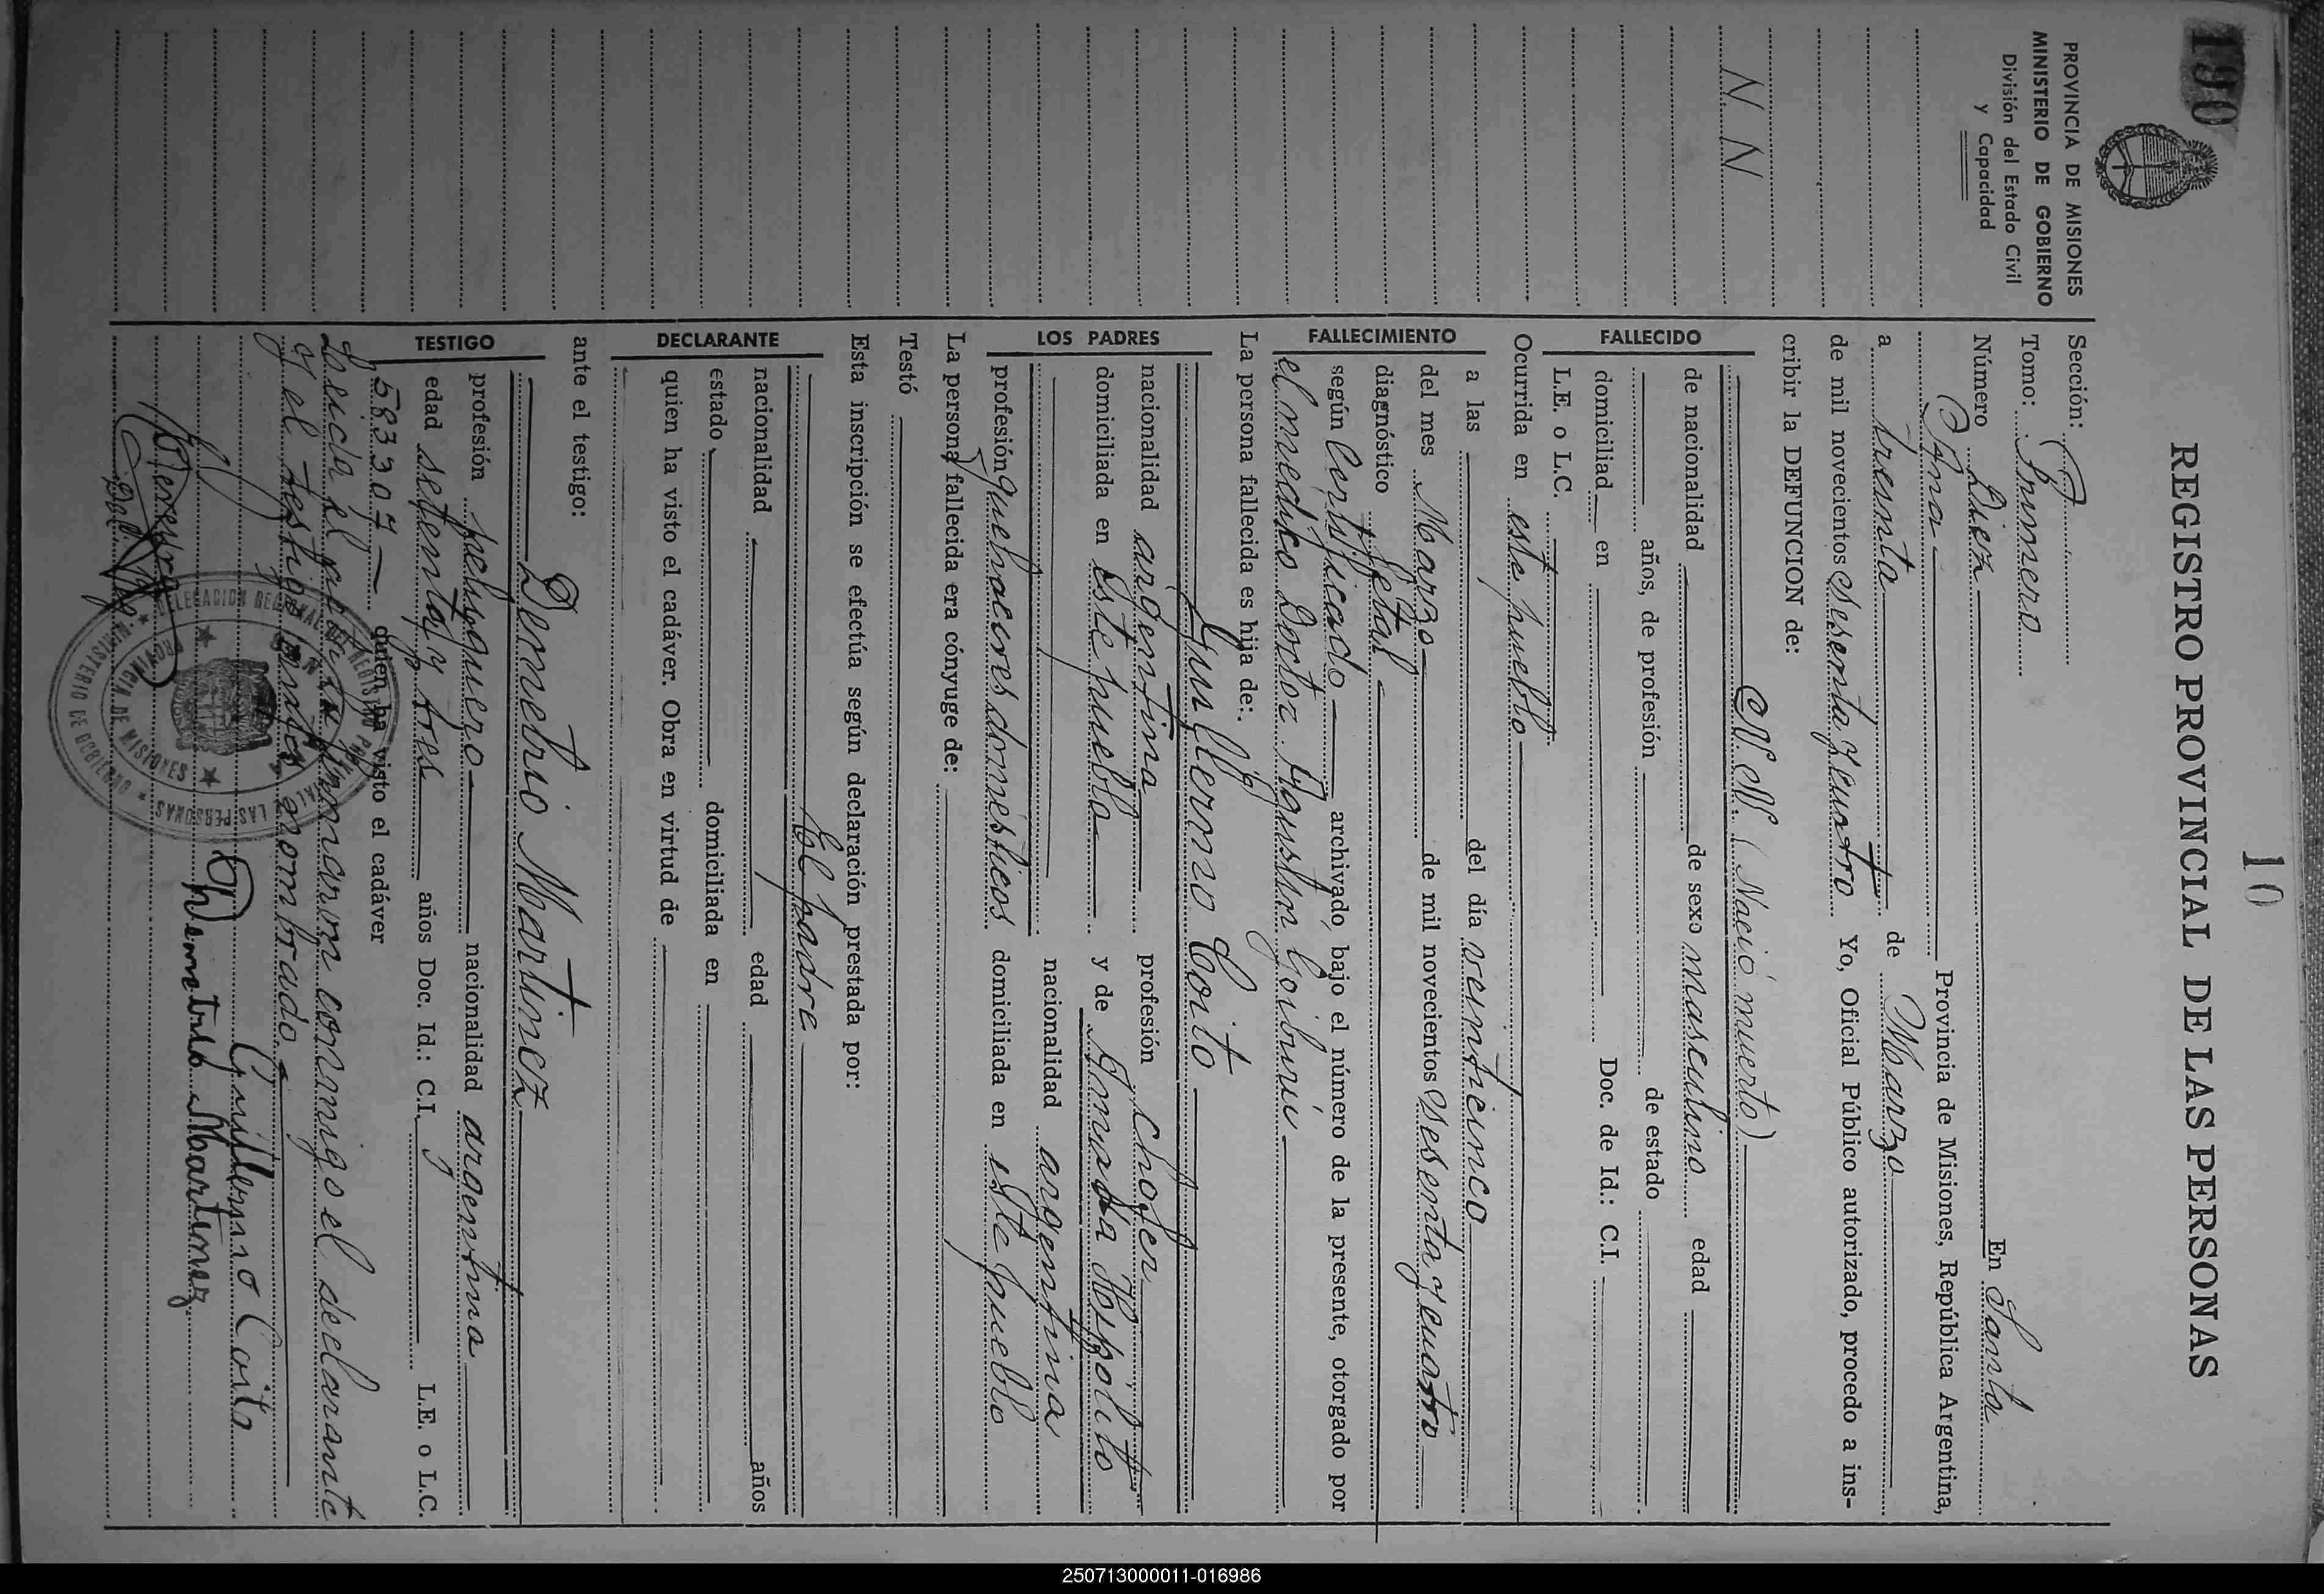 10
190
REGISTRO PROVINCIAL DE LAS PERSONAS
PROVINCIA DE MISIONES
MINISTERIO DE GOBIERNO
División del Estado Civil
y Capacidad
N. N
Sección:
Tomo: Primero
Número Diez En Santa
Ana Provincia de Misiones, República Argentina,
a treinta de Marzo
de mil novecientos sesenta y cuatro Yo, Oficial Público autorizado, procedo a ins-
cribir la DEFUNCION de:
FALLECIDO
N.N. (Nació muerto)
de nacionalidad de sexo masculino edad
años, de profesión de estado
domiciliad en Doc. de Id.: C.I.
L.E. o L.C.
Ocurrida en este pueblo
FALLECIMIENTO
a las del día veinticinco
del mes Marzo de mil novecientos sesenta y cuatro
diagnóstico fetal
según Certificado archivado bajo el número de la presente, otorgado por
el médico Doctor Agustín Goiburú
La persona fallecida es hija de:
LOS PADRES
Guillermo Coito
nacionalidad argentina profesión chofer
domiciliada en este pueblo y de Amanda Hospólito
nacionalidad argentina
profesión quehaceres domésticos domiciliada en este pueblo
La persona fallecida era cónyuge de:
Testó
Esta inscripción se efectúa según declaración prestada por:
DECLARANTE
El padre
nacionalidad edad años
estado domiciliada en
quien ha visto el cadáver. Obra en virtud de
ante el testigo:
TESTIGO
Demetrio Martinez
profesión peluquero nacionalidad argentina
edad setenta y tres años Doc. Id.: C.I. L.E. o L.C.
583307 quien ha visto el cadáver
Leida el acta firmaron conmigo el declarante
y el testigo antes nombrado.
Guillermo Coito
Demetrio Martinez
DELEGACION REGIONAL DEL REGISTRO PROVINCIAL DE LAS PERSONAS
MINISTERIO DE GOBIERNO
PROVINCIA DE MISIONES
250713000011-016986